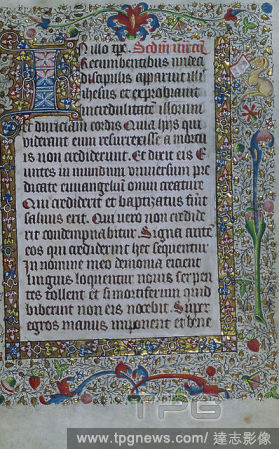 In illo tpe. Scdm marcū
Recumbentibus undecī
discipulis apparuit illis
ihesus et exprobravit
incredulitatē illorum
et duriciam cordis Quia hijs qui
viderant eum resurrexisse a mortu
is non crediderunt. Et dixit eis E
untes in mundum universum pre
dicate euuangeliū omni creature
Qui crediderit et baptizatus fuit
salvus erit. Qui vero non credide
rit condempnabitur. Signa autē
eos qui crediderint hec sequentur
In nomine meo demonia eicient
linguis loquentur novis serpen
tes tollent et si mortiferum quid
biberint non eis nocebit. Super
egros manus imponent et bene
TPG
www.tpgnews.com / 達志影像